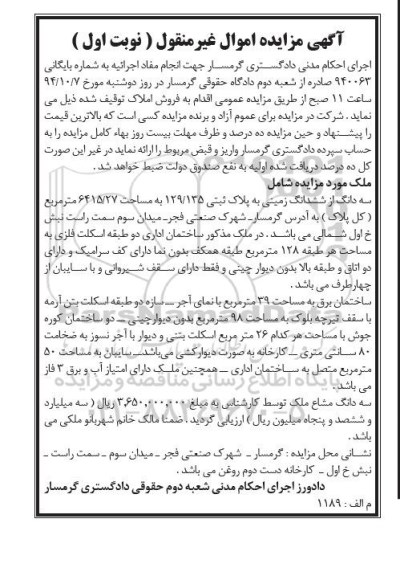 آگهی مزایده اموال غیرمنقول ( نوبت اول )
اجرای احکام مدنی دادگستری گرمسار جهت انجام مفاد اجرائیه به شماره بایگانی
۹۴۰۰۶۳ صادره از شعبه دوم دادگاه حقوقی گرمسار در روز دوشنبه مورخ ۹۴/۱۰/۷
ساعت ۱۱ صبح از طریق مزایده عمومی اقدام به فروش املاک توقیف شده ذیل می
نماید . شرکت در مزایده برای عموم آزاد و برنده مزایده کسی است که بالاترین قیمت
را پیشنهاد و حین مزایده ده درصد و ظرف مهلت بیست روز بهاء کامل مزایده را به
حساب سپرده دادگستری گرمسار واریز و قبض مربوط را ارائه نماید در غیر این صورت
کل ده درصد دریافت شده اولیه به نفع صندوق دولت ضبط خواهد شد .
ملک مورد مزایده شامل
سه دانگ از ششدانگ زمینی به پلاک ثبتی ۱۲۹/۱۳۵ به مساحت ۶۴۱۵/۲۷ مترمربع
( کل پلاک ) به آدرس گرمسار- شهرک صنعتی فجر- میدان سوم سمت راست نبش
خ اول شمالی می باشد . در ملک مذکور ساختمان اداری دو طبقه اسکلت فلزی به
مساحت هر طبقه ۱۲۸ مترمربع طبقه همکف بدون نما دارای کف سرامیک و دارای
دو اتاق و طبقه بالا بدون دیوار چینی و فقط دارای سقف شیروانی و با سایبان از
چهارطرف می باشد .
ساختمان برق به مساحت ۳۹ مترمربع با نمای آجر – سازه دو طبقه اسکلت بتن آرمه
با سقف تیرچه بلوک به مساحت ۹۸ مترمربع بدون دیوارچینی – دو ساختمان کوره
جوش با مساحت هر کدام ۲۶ متر مربع اسکلت بتنی و دیوار با آجر نسوز به ضخامت
۸۰ سانتی متری – کارخانه به صورت دیوارکشی می‌باشد- سایبان به مساحت ۵۰
مترمربع متصل به ساختمان اداری – همچنین ملک دارای امتیاز آب و برق ۳ فاز
می باشد .
سه دانگ مشاع ملک توسط کارشناس به مبلغ ۳,۶۵۰,۰۰۰,۰۰۰ ریال ( سه میلیارد
و ششصد و پنجاه میلیون ریال ) ارزیابی گردید . ضمنا مالک خانم شهربانو ملکی می
باشد .
نشانی محل مزایده : گرمسار – شهرک صنعتی فجر – میدان سوم – سمت راست –
نبش خ اول – کارخانه دست دوم روغن می باشد .
دادورز اجرای احکام مدنی شعبه دوم حقوقی دادگستری گرمسار
م الف : ۱۱۸۹